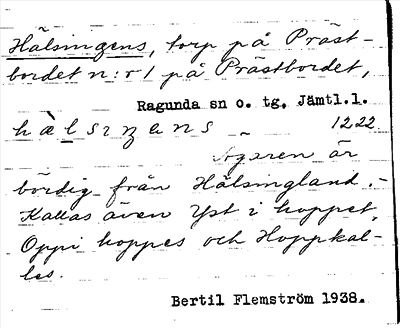 Hälsingens, torp på Präst-
bordet n:r 1 på Prästbordet,
Ragunda sn o. tg. Jämtl.l.
hàlsiŋens 1222
Ägaren är
bördig från Hälsingland.-
Kallas även Yst i hoppet,
Oppi hoppes och Hoppkal-
les.
Bertil Flemström 1938.